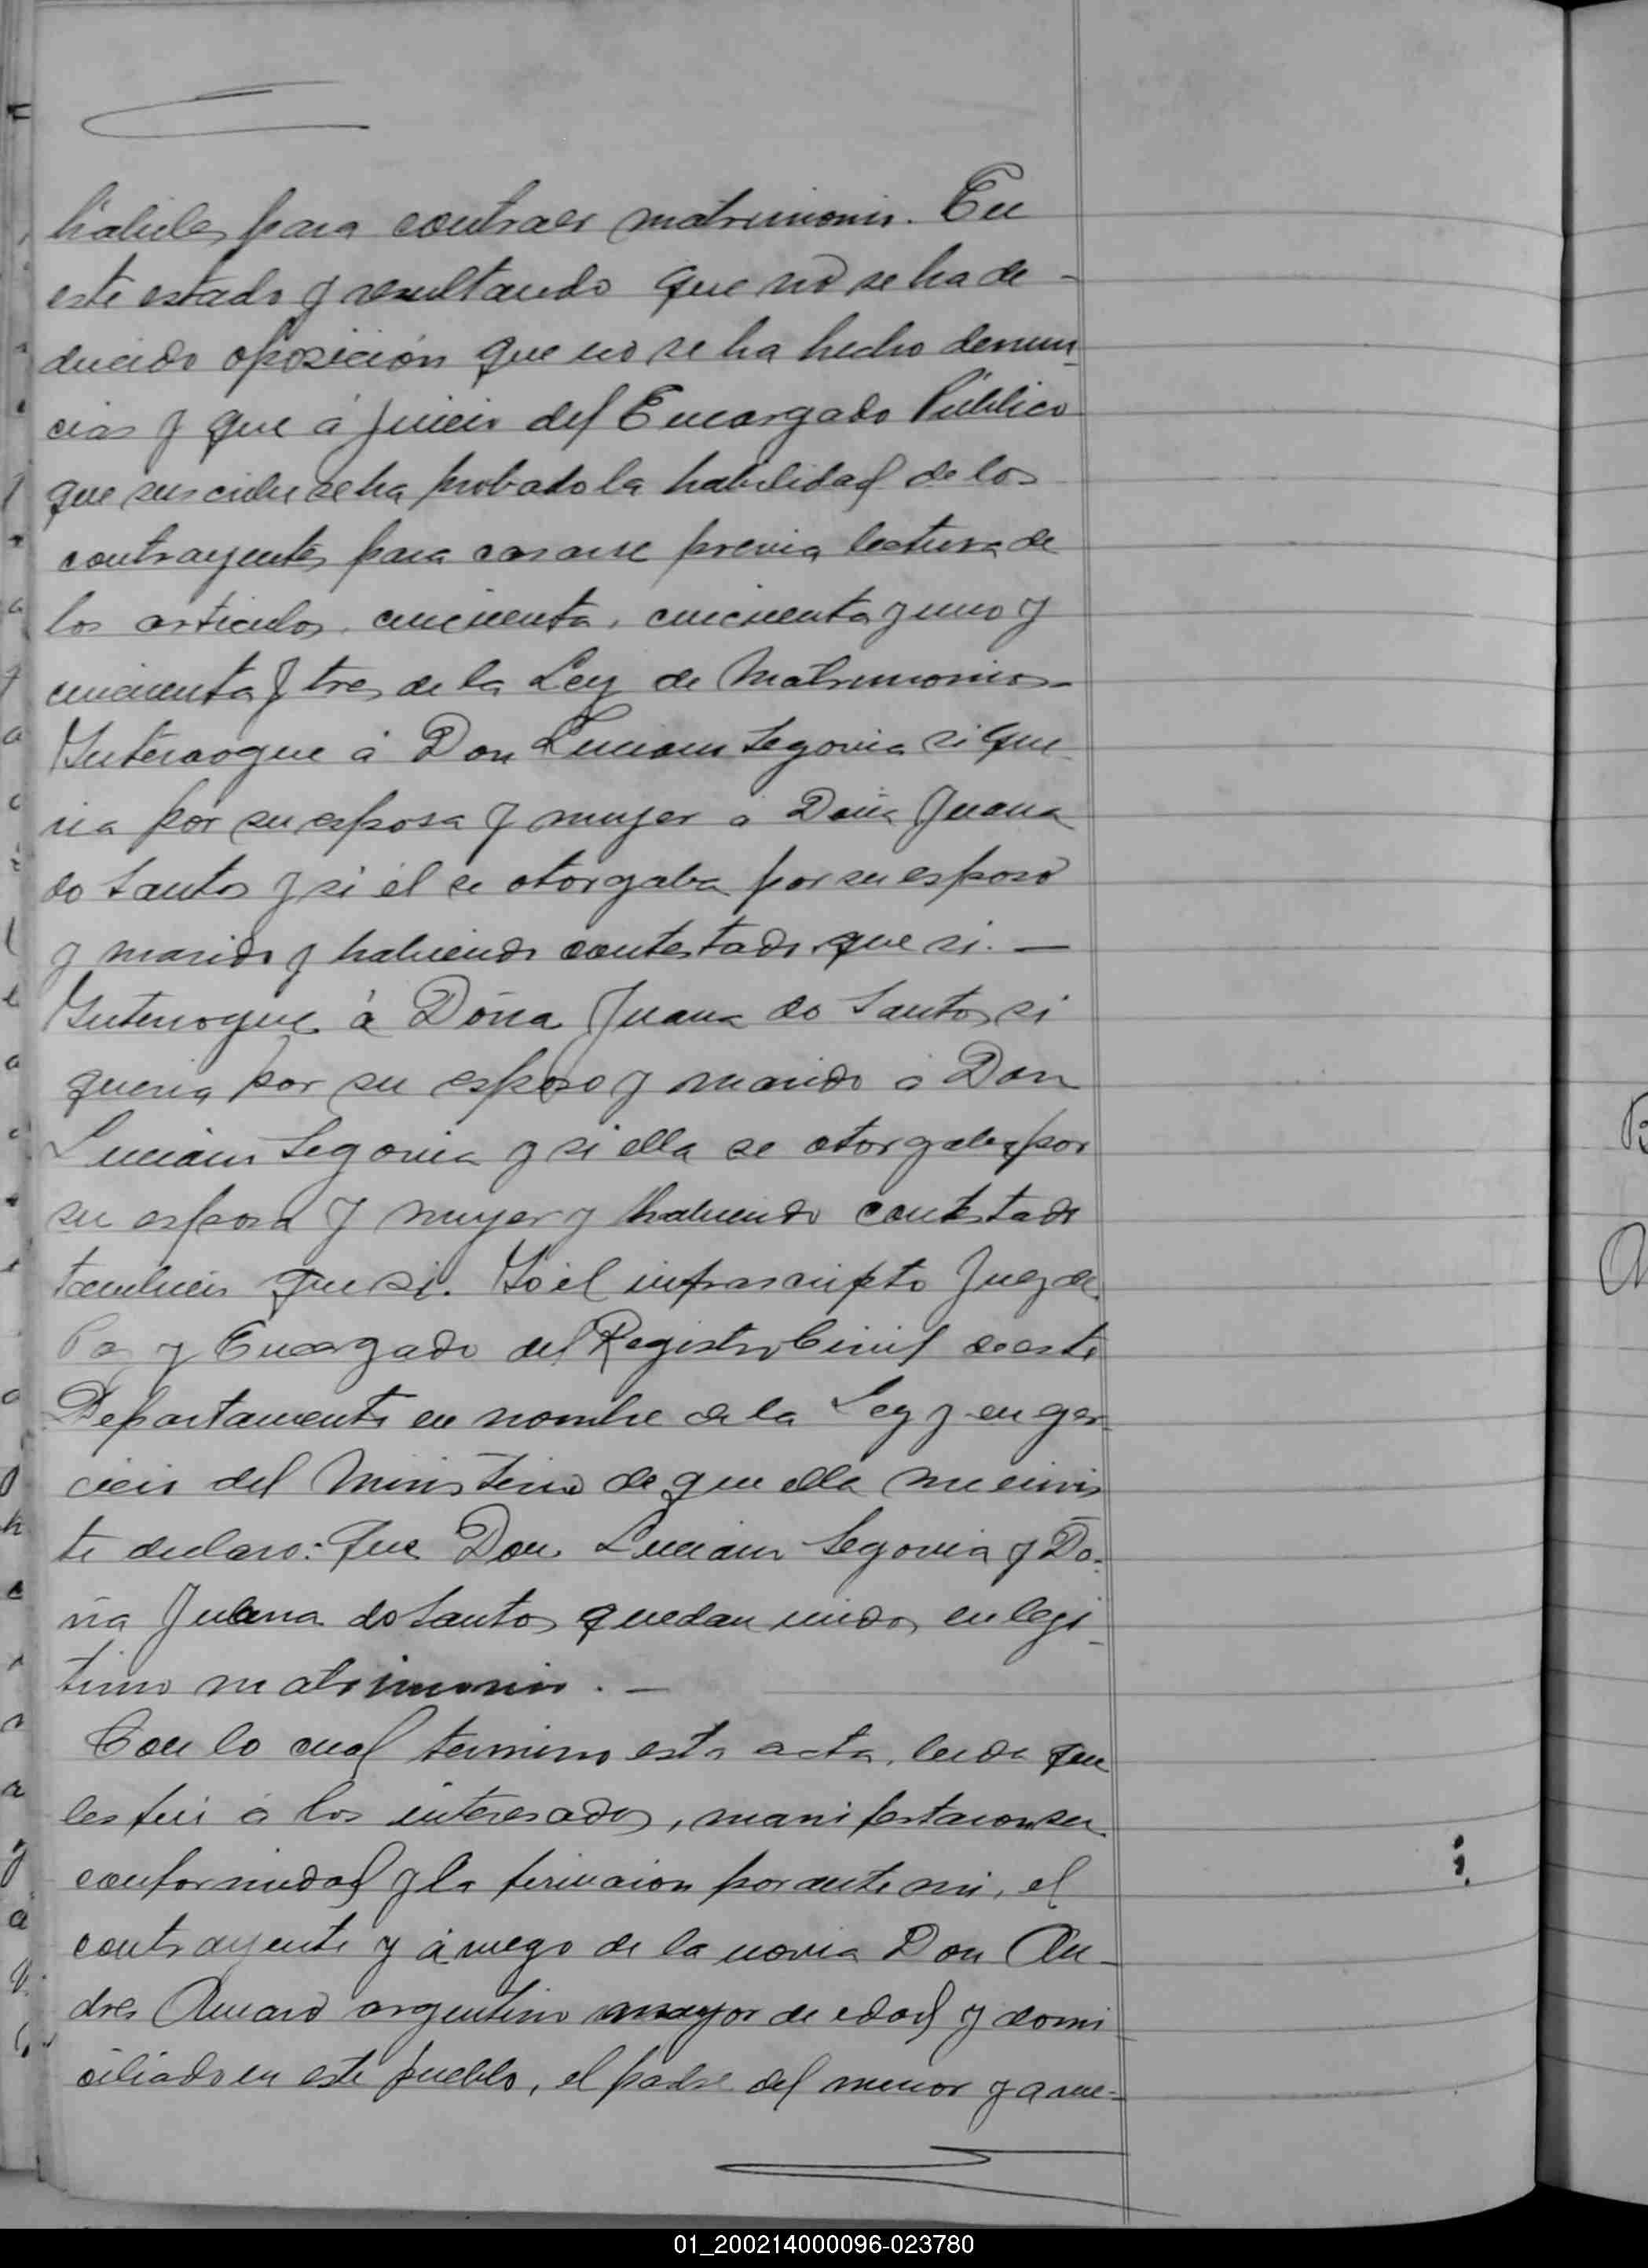 hábiles para contraer matrimonio. En
este estado y resultando que no se ha de-
ducido oposición que no se ha hecho denun-
cias y que á juicio del Encargado Público
que suscribe se ha probado la habilidad de los
contrayentes para casarse previa lectura de
los articulos, cincuenta, cincuenta y uno y
cincuenta y tres de la Ley de Matrimonios-
Interrogue á Don Luciano Segovia si que-
ria por su esposa y mujer a Doña Juana
do Santos y si él se otorgaba por su esposo
y marido y habiendo contestado que si. —
Interrogue á Doña Juana do Santos si
queria por su esposo y marido a Don
Luciano Segovia y si ella se otorgaba por
su esposa y mujer y habiendo contestado
tambien que si. Yo el infrascripto Juez de
Paz y Encargado del Registro Civil de este
Departamento en nombre de la Ley y en ejer-
cicio del Ministerio de que ella me invis
te declaro: Que Don Luciano Segovia y Do-
ña Juana do Santos quedan unidos en legi-
timo matrimonio. —
Con lo cual termino esta acta, leida que
les fué á los interesados, manifestaron su
conformidad y la firmaron por ante mi, el
contrayente y á ruego de la novia Don An-
dres Amaro argentino mayor de edad y domi-
ciliado en este pueblo, el padre del menor y a rue-
01_200214000096-023780